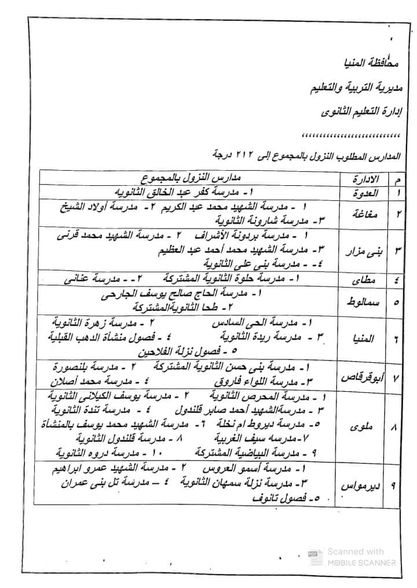 محافظة المنيا
مديرية التربية والتعليم
إدارة التعليم الثانوى
المدارس المطلوب النزول بالمجموع إلى ٢١٢ درجة
م الادارة مدارس النزول بالمجموع
١ العدوة ١- مدرسة كفر عبد الخالق الثانوية
٢ مغاغة ١ - مدرسة الشهيد محمد عبد الكريم ٢- مدرسة أولاد الشيخ
٣- مدرسة شارونة الثانوية
٣ بنى مزار ١- مدرسة بردونة الأشراف ٢ - مدرسة الشهيد محمد قرنى
٣- مدرسة الشهيد محمد أحمد عبد العظيم
٤ - مدرسة بنى على الثانوية
٤ مطاى ١- مدرسة حلوة الثانوية المشتركة ٢- مدرسة عنانى
٥ سمالوط ١- مدرسة الحاج صالح يوسف الجارحى
٢- طحا الثانوية المشتركة
٦ المنيا ١- مدرسة الحى السادس ٢ - مدرسة زهرة الثانوية
٣- مدرسة ريدة الثانوية ٤ - فصول منشأة الدهب القبلية
٥ - فصول نزلة الفلاحين
٧ أبوقرقاص ١- مدرسة بنى حسن الثانوية المشتركة ٢ - مدرسة بلنصورة
٣- مدرسة اللواء فاروق ٤ - مدرسة محمد أصلان
٨ ملوى ١ - مدرسة المحرص الثانوية ٢ - مدرسة يوسف الكيلانى الثانوية
٣ - مدرسةالشهيد أحمد صابر قلندول ٤ - مدرسة تندة الثانوية
٥- مدرسة ديروط ام نخلة ٦- مدرسة الشهيد محمد يوسف بالمنشأة
٧- مدرسة سيف الغربية ٨ - مدرسة قلندول الثانوية
٩ - مدرسة البياضية المشتركة ١٠ - مدرسة دروه الثانوية
٩ ديرمواس ١- مدرسة أسمو العروس ٢ - مدرسة الشهيد عمرو ابراهيم
٣- مدرسة نزلة سمهان الثانوية ٤ - مدرسة تل بنى عمران
٥- فصول تانوف
Scanned with
MOBILE SCANNER